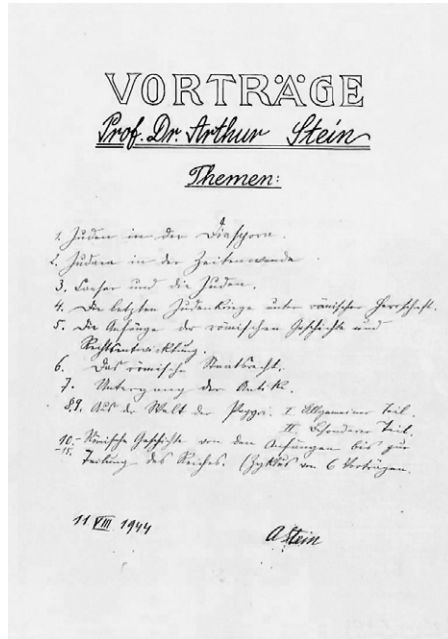 VORTRÄGE
Prof. Dr. Arthur Stein
Themen:
1. Juden in der Diaspora.
2. Judäa in der Zeitenwende.
3. Caesar und die Juden.
4. Die letzten Judenkriege unter römischer Herrschaft.
5. Die Anfänge der römischen Geschichte und
Rechtsentwicklung.
6. Das römische Staatsrecht.
7. Untergang der Antike.
8.9. Aus der Welt der Papyri. I Allgemeiner Teil.
II. Besonderer Teil.
10.- Römische Geschichte von den Anfängen bis zur
-15. Teilung des Reiches. (Zyklus von 6 Vorträgen.
11 VIII 1944
AStein